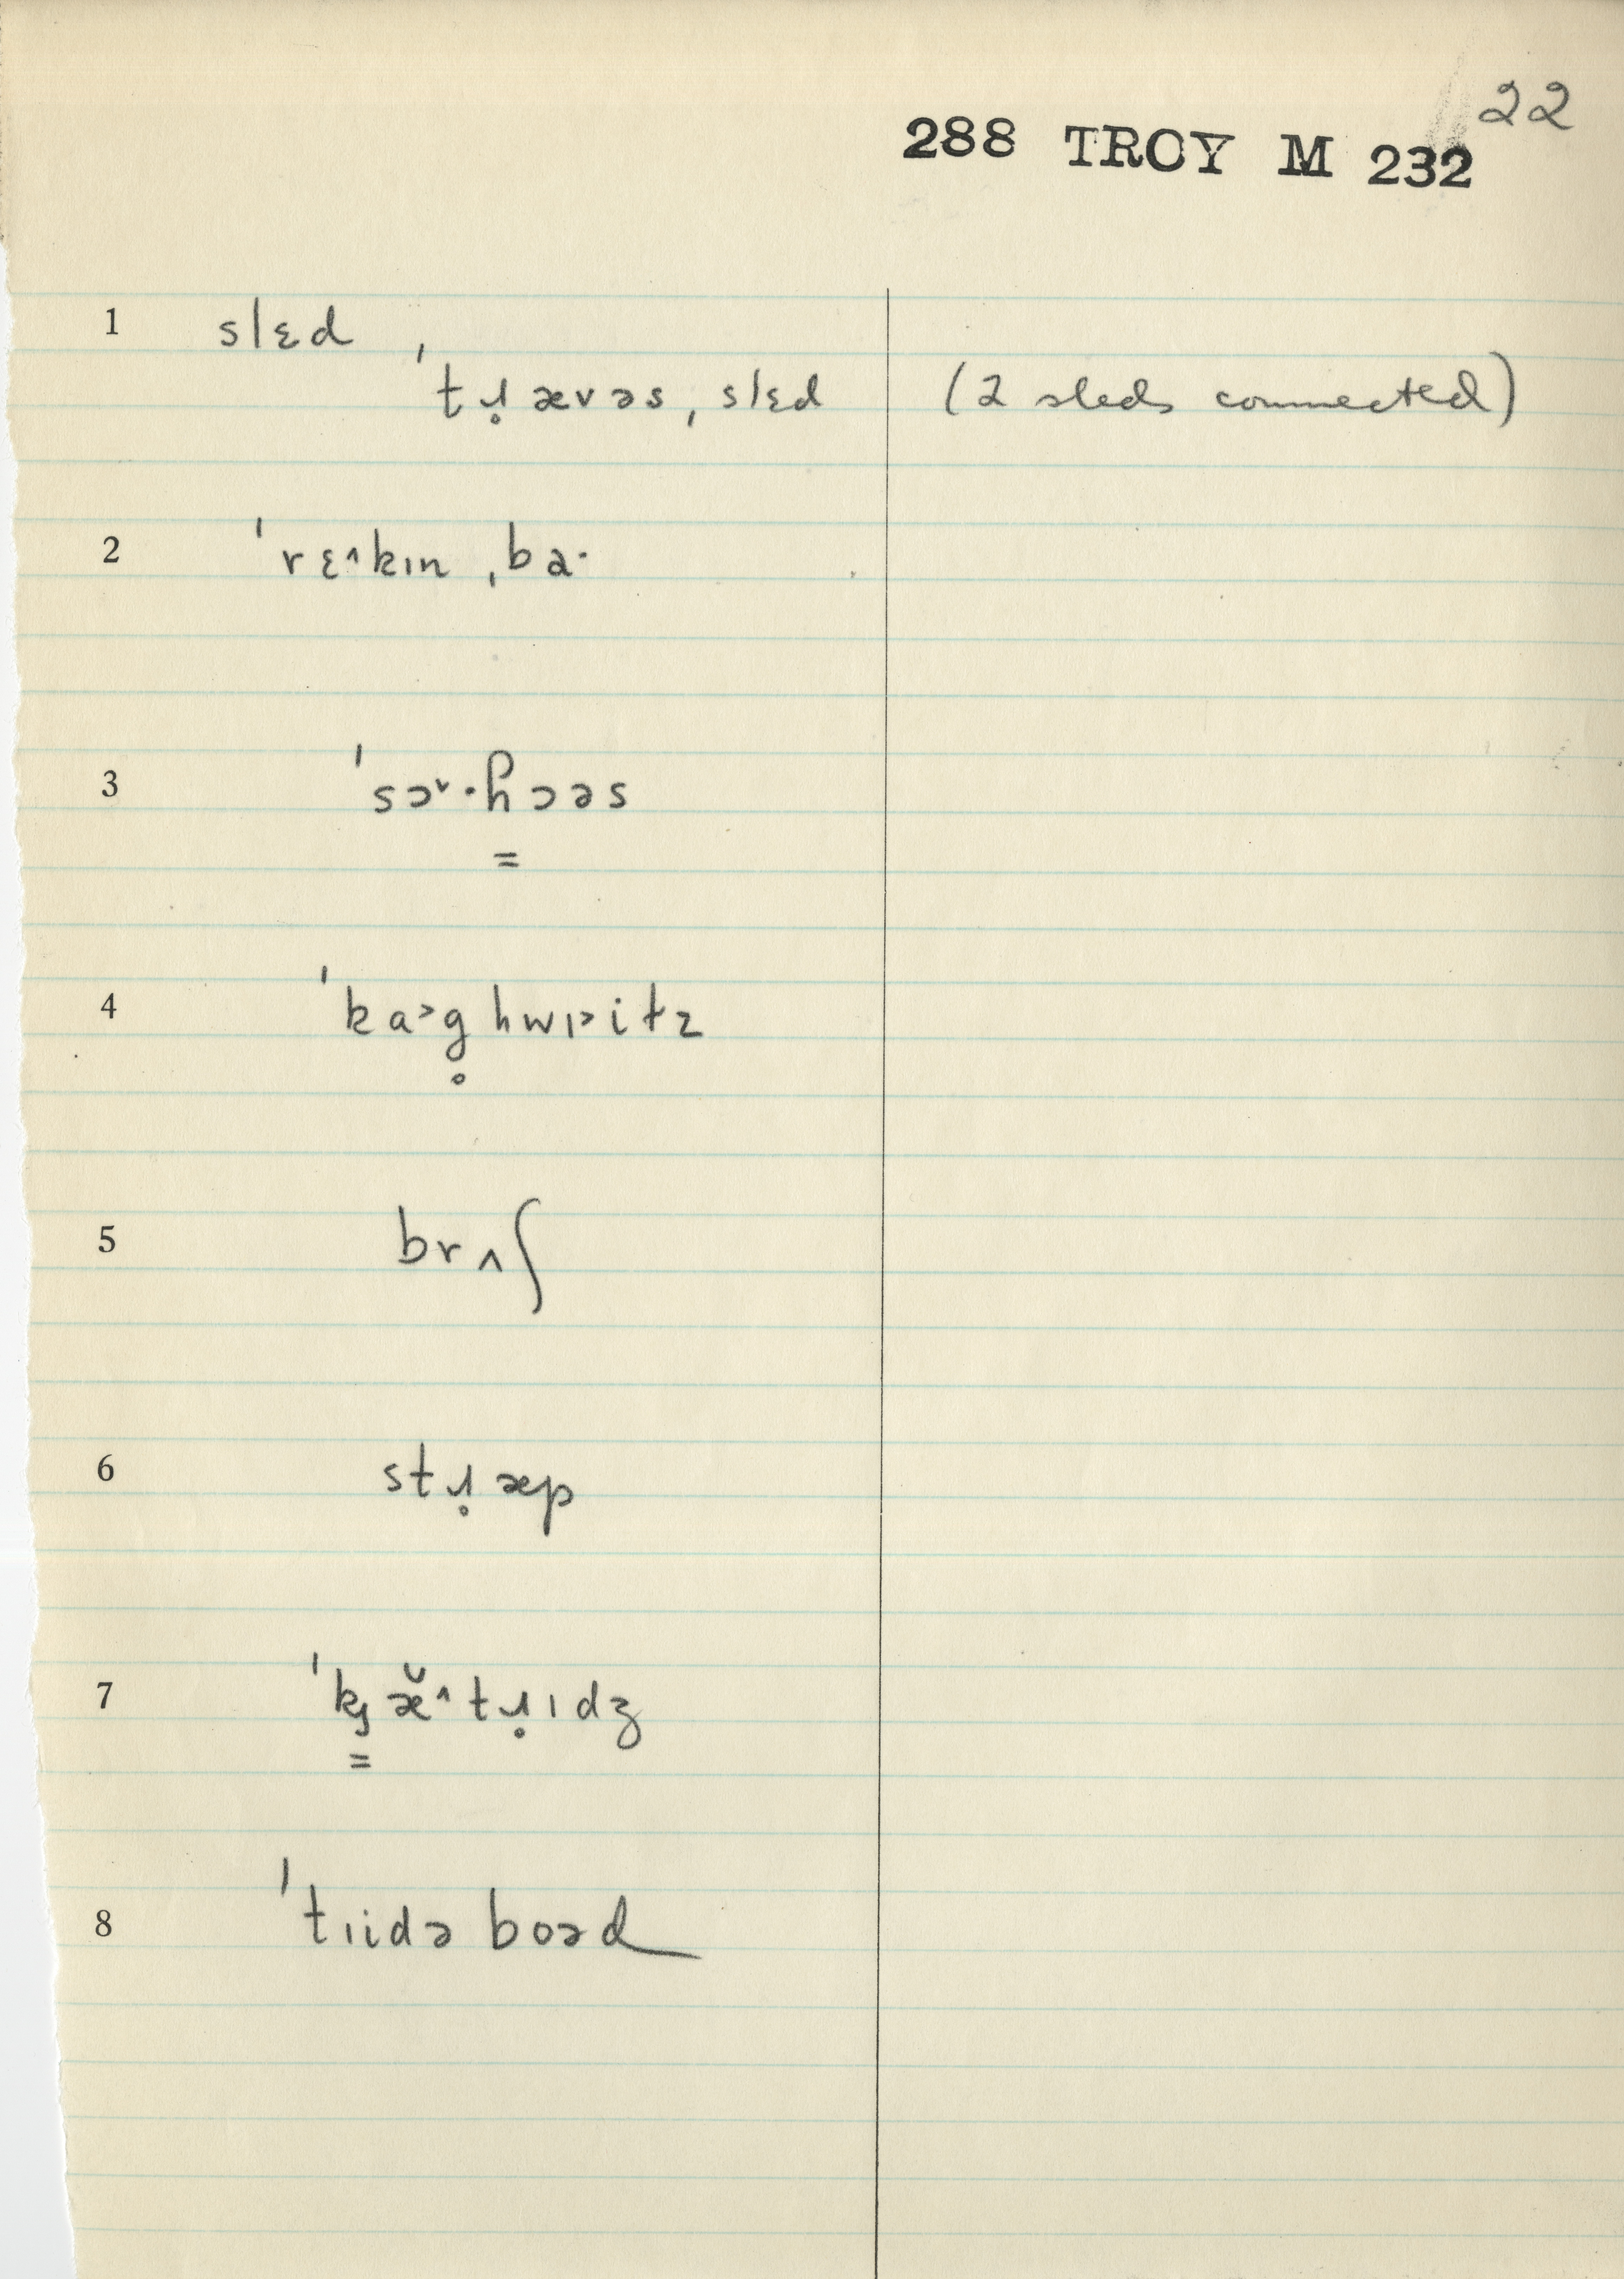 22
288 TROY M 232
1 slɛd
ˈtɹ̥ævəsˌslɛd (2 sleds connected)
2 ˈrɛ˄kɪnˌba·
3 ˈsɔ˅·ɦ̳ɔəs
4 ˈka˃g̊hwɪ˃itz
5 brʌʃ
6 stɹ̥æp
7 ˈkʒ̳æ̆˄tɹ̥ɪdʒ
8 ˈtɪidə boəd